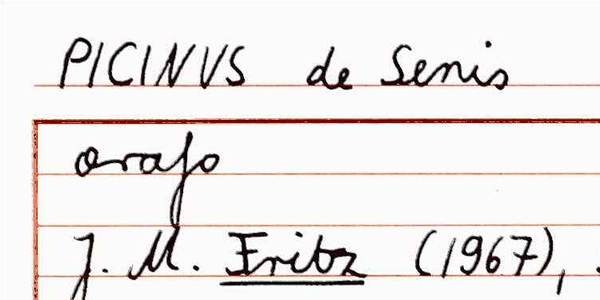 PICINVS de Senis
orafo
J. M. Fritz (1967),